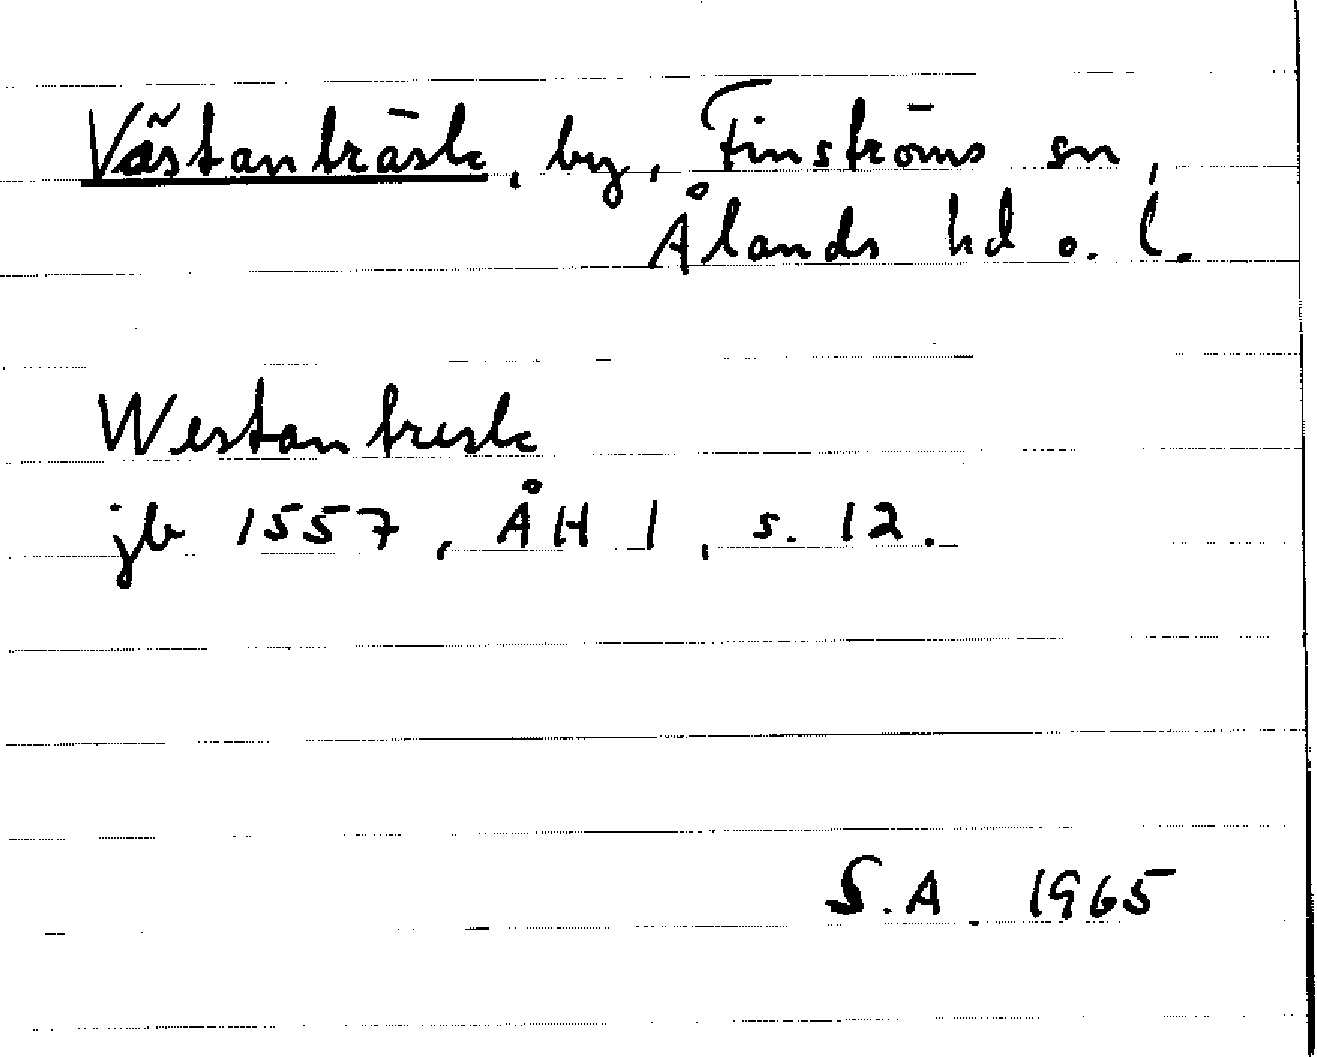 Västanträsk, by, Finströms sn,
Ålands hd o. l.
Westantresk
jb 1557, ÅH I, s. 12.
S.A. 1965